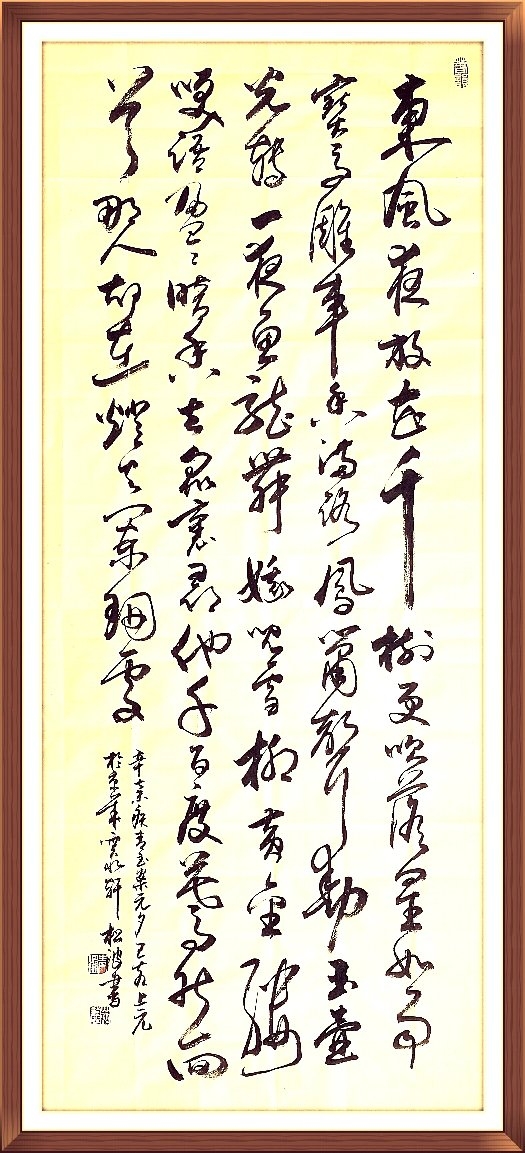 東風夜放花千樹更吹落星如雨
寶馬雕車香滿路鳳簫聲動玉壺
光轉一夜魚龍舞蛾兒雪柳黃金縷
咲語盈盈暗香去眾裏尋他千百度驀然回
首那人却在燈火闌珊處
辛棄疾青玉案元夕己亥上元
於京華雲水軒松波書